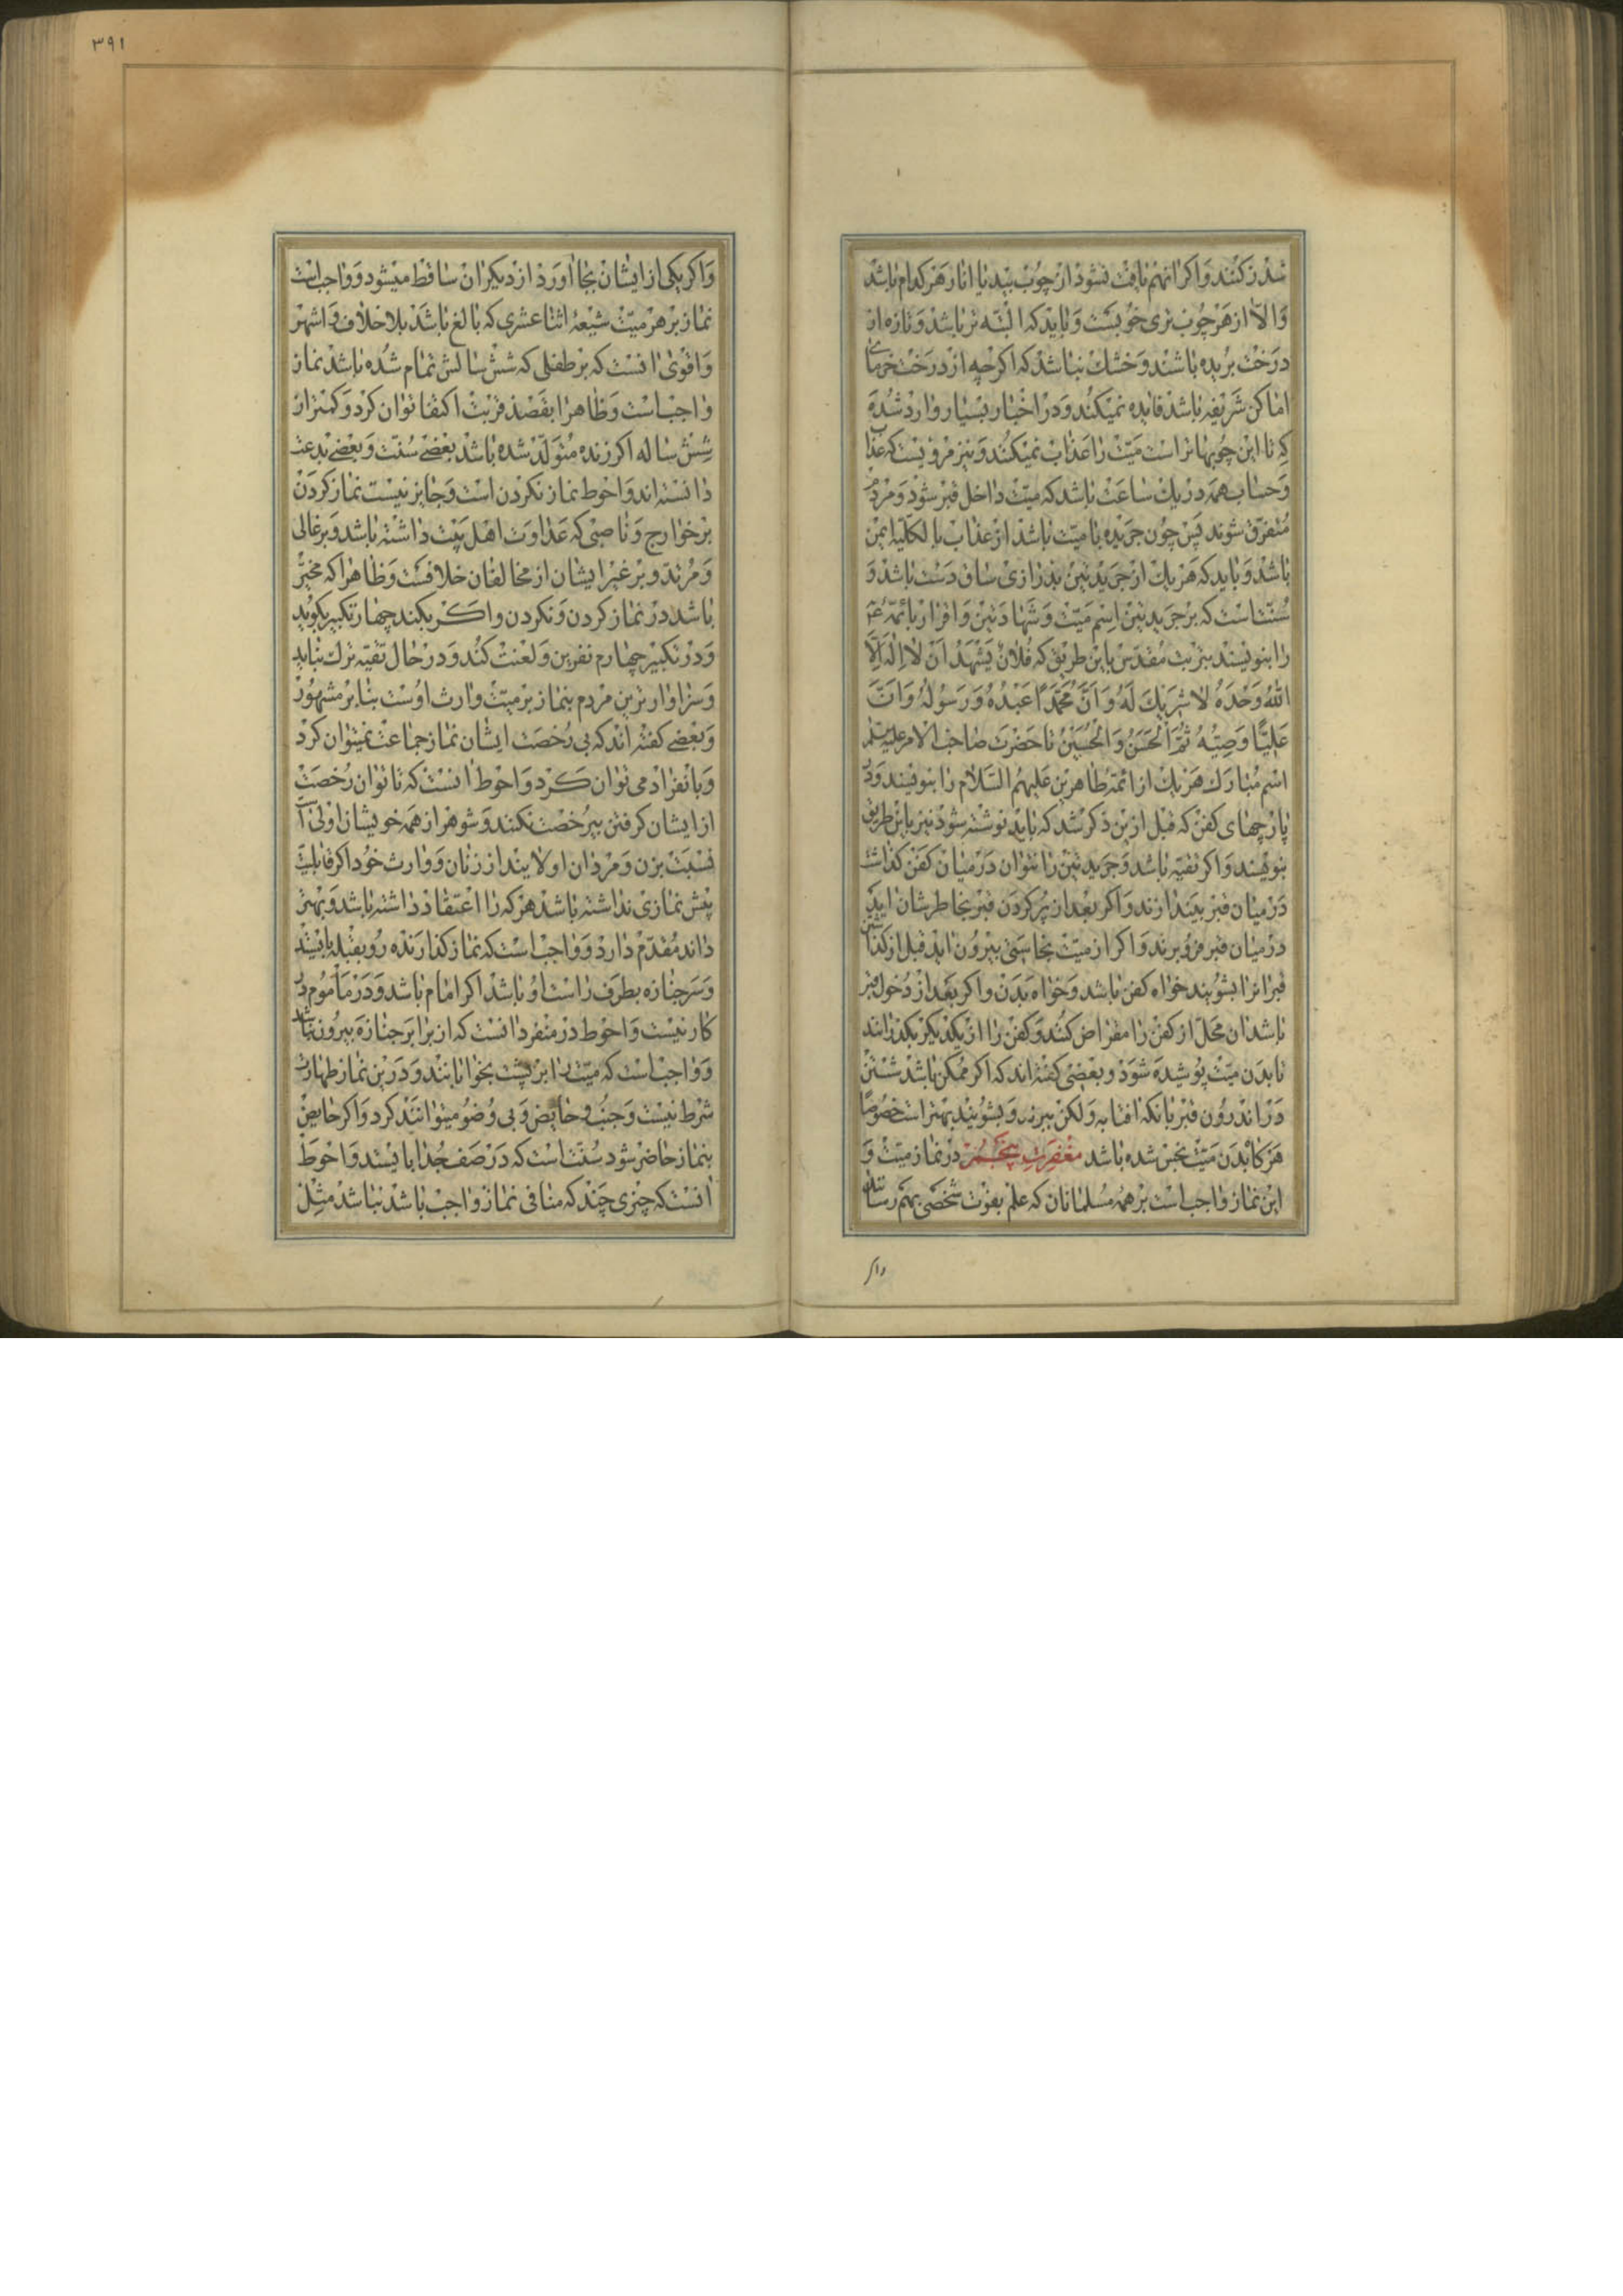 شدز کنند و اکر انهم یافت نشود از چوب بید یا انار هر کدام باشد
و الا از هر چوب تری خوبست و باید که البته تر باشد و تازه از
درخت بریده باشند و خشک نباشد که اکرچه از درخت خرمای
اماکن شریفه باشد فایده نمیکند و در اخبار بسیار وارد شده
که تا این چوبها تر است میت را عذاب نمیکنند و نیز مرویست که عذاب
و حساب همه در یک ساعت باشد که میت داخل قبر شود و مردم
متفرق شوند پس چون جریده با میت باشد از عذاب بالکلیه ایمن
باشد و باید که هر یک از جریدتین بدرازی ساق دست باشد و
سنت است که بر جریدتین اسم میت و شهادتین و اقرار بائمه ع
را بنویسند بتربت مقدس باین طریق که فلان یشهد ان لا اله الا
الله وحده لا شریک له و ان محمدا عبده و رسوله و ان
علیا وصیه ثم الحسن و الحسین تا حضرت صاحب الامر علیه السلام
اسم مبارک هر یک از ائمه طاهرین علیهم السلام را بنویسند و در
پارچهای کفن که قبل ازین ذکر شد که باید نوشته شود نیز باین طریق
بنویسند و اکر تقیه باشد و جریدتین را نتوان در میان کفن کذاشت
در میان قبر بیندازند و اکر بعد از پر کردن قبر بخاطرشان اید
در میان قبر فرو برند و اکر از میت نجاستی بیرون اید قبل از کذاشتن
قبر انرا بشویند خواه کفن باشد و خواه بدن و اکر بعد از دخول قبر
باشد ان محل از کفن را مقراض کنند و کفن را از یکدیکر بکذرانند
تا بدن میت پوشیده شود و بعضی کفته اند که اکر ممکن باشد شستن
در اندرون قبر بانکه افتابه و لکن ببرند و بشویند بهتر است خصوصا
هر کاه بدن میت نجس شده باشد مغفرت پنجم در نماز میت و
این نماز واجب است بر همه مسلمانان که علم بفوت شخصی بهم رسانند
واکر
٣٩١
و اکر یکی از ایشان بجا اورد از دیکران ساقط میشود و واجب است
نماز بر هر میت شیعه اثنا عشری که بالغ باشد بلا خلاف و اشهر
و اقوی انست که بر طفلی که شش سالش تمام شده باشد نماز
واجب است و ظاهرا بقصد قربت اکتفا توان کرد و کمتر از
شش ساله اکر زنده متولد شده باشد بعضی سنت و بعضی بدعت
دانسته اند و احوط نماز نکردن است و جایز نیست نماز کردن
بر خوارج و ناصبی که عداوت اهل بیت داشته باشد و بر غالی
و مرتد و بر غیر ایشان از مخالفان خلافست و ظاهرا که مخیر
باشد در نماز کردن و نکردن و اکر بکند چهار تکبیر بکوید
و در تکبیر چهارم نفرین و لعنت کند و در حال تقیه ترک نباید
و سزاوارترین مردم بنماز بر میت وارث اوست بنا بر مشهور
و بعضی کفته اند که بی رخصت ایشان نماز جماعت نمیتوان کرد
و بانفراد می توان کرد و احوط انست که تا توان رخصت
از ایشان کرفتن بیرخصت نکنند و شوهر از همه خویشان اولی است
نسبت بزن و مردان اولایند از زنان و وارث خود اکر قابلیت
پیش نمازی نداشته باشد هر که را اعتقاد داشته باشد و بهتر
داند مقدم دارد و واجب است که نماز کذارنده رو بقبله بایستد
و سر جنازه بطرف راست او باشد اکر امام باشد و در ماموم در
کار نیست و احوط در منفرد انست که از برابر جنازه بیرون نباشد
و واجب است که میت را بر پشت بخوابانند و درین نماز طهارت
شرط نیست و جنب و حایض و بی وضو میتوانند کرد و اکر حایض
بنماز حاضر شود سنت است که در صف جدا بایستد و احوط
انست که چیزی چند که منافی نماز واجب باشد نباشد مثل